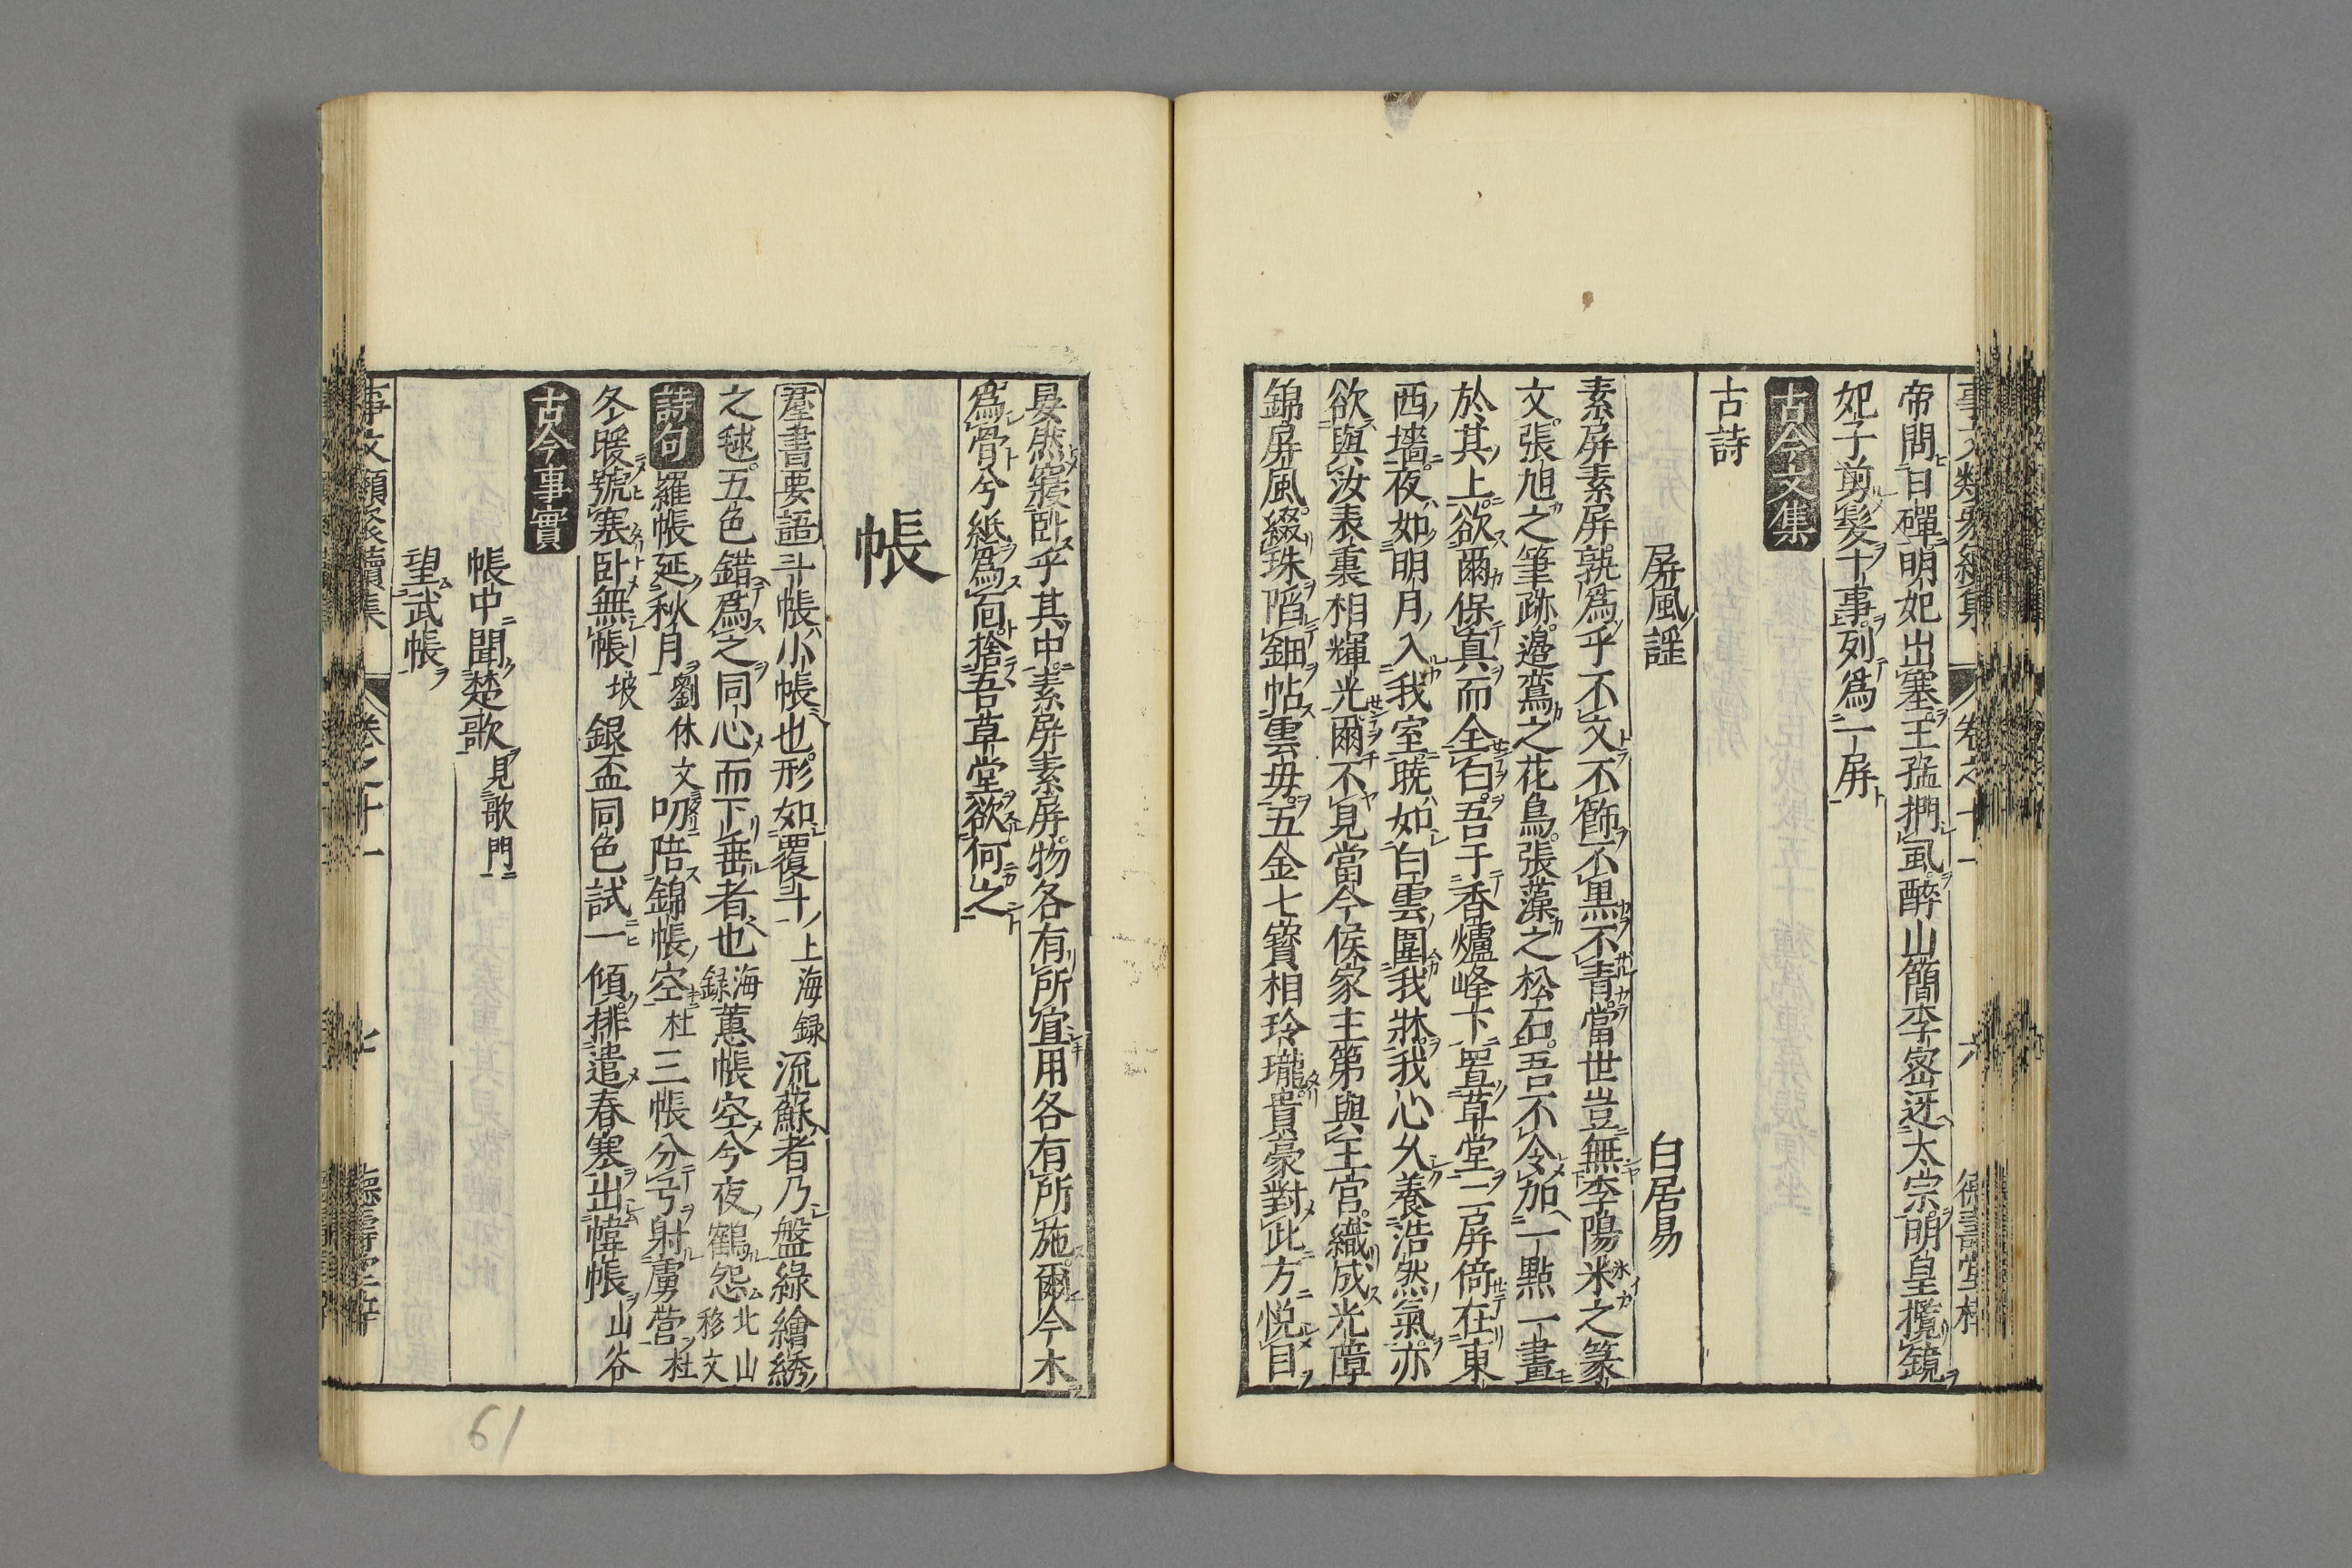 帝問日磾明妃出塞王猛捫虱醉山簡李宻迓太宗明皇攬鏡
妃子剪髮十事列爲一屛
古今文集
古詩
屛風謡 白居易
素屛素屛孰爲乎不文不飾不黒不青當世豈無李陽氷之篆
文張旭之筆跡邉鸞之花鳥張藻之松石吾不令加一點一畫
於其上欲爾保真而全白吾于香爐峰下置草堂二屛倚在東
西墻夜如明月入我室暁如白雲圍我牀我心乆養浩然氣亦
欲與汝表裏相輝光爾不見當今侯家主第與王官織成光障
錦屛風綴珠䧟鈿帖雲毋五金七寳相玲瓏貴豪對此方悦目
晏然寢卧乎其中素屛素屛物各有所宜用各有所施爾今木
爲骨兮紙爲面捨吾草堂欲何之
帳
羣書要語斗帳小帳也形如覆斗上海録流蘇者乃盤綠繪綉
之毬五色錯爲之同心而下垂者也海録蕙帳空兮夜鶴怨北山移文
詩句羅帳延秋月劉休文叨陪錦帳空杜三帳分弓射虜営杜
冬暖號寒卧無帳坡銀盃同色試一傾排遣春寒出幃帳山谷
古今事實
帳中聞楚歌見歌門
望武帳
卷之十一
七
61